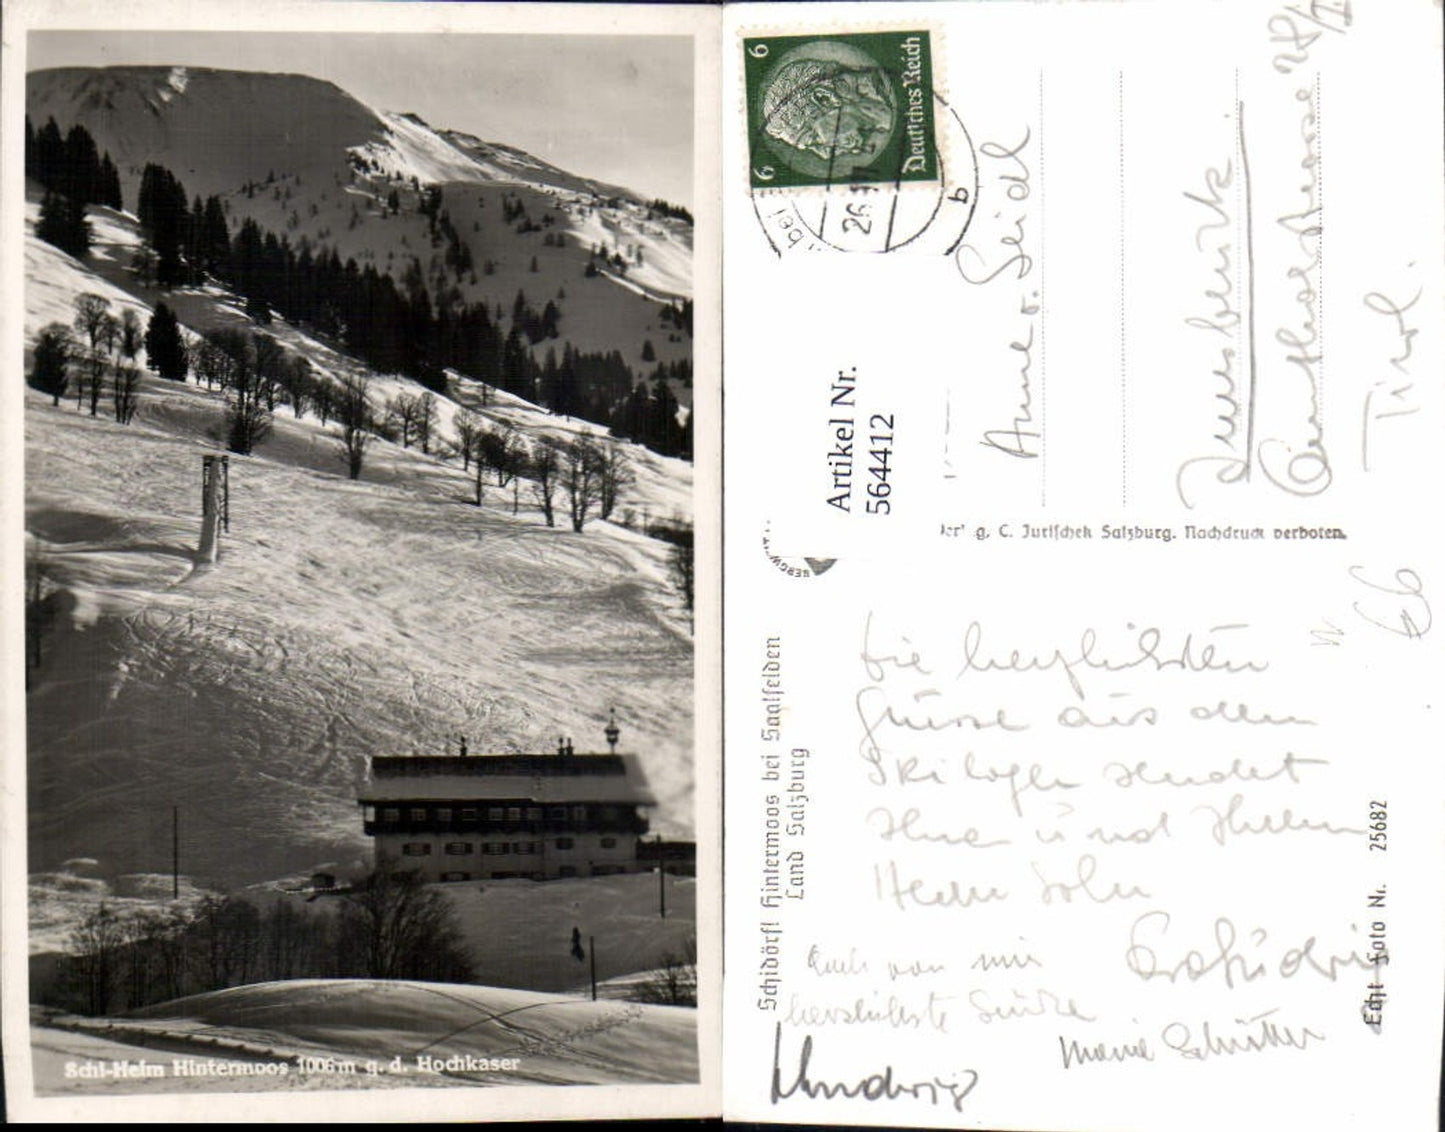 Schi-Heim Hintermoos 1006m g. d. Hochkaser
6
6
Deutsches Reich
bei
26
b
Artikel Nr.
564412
Anne v. Seidl
Innsbruck.
Tirol.
g. C. Jurischek Salzburg. Nachdruck verboten.
Schidörfl Hintermoos bei Saalfelden
Land Salzburg
Echt Foto Nr. 25682
Die herzlichsten
Grüsse aus dem
Skilager sendet
Ihnen und Ihrem
Herrn Sohn
Auch von mir
herzlichste Grüße